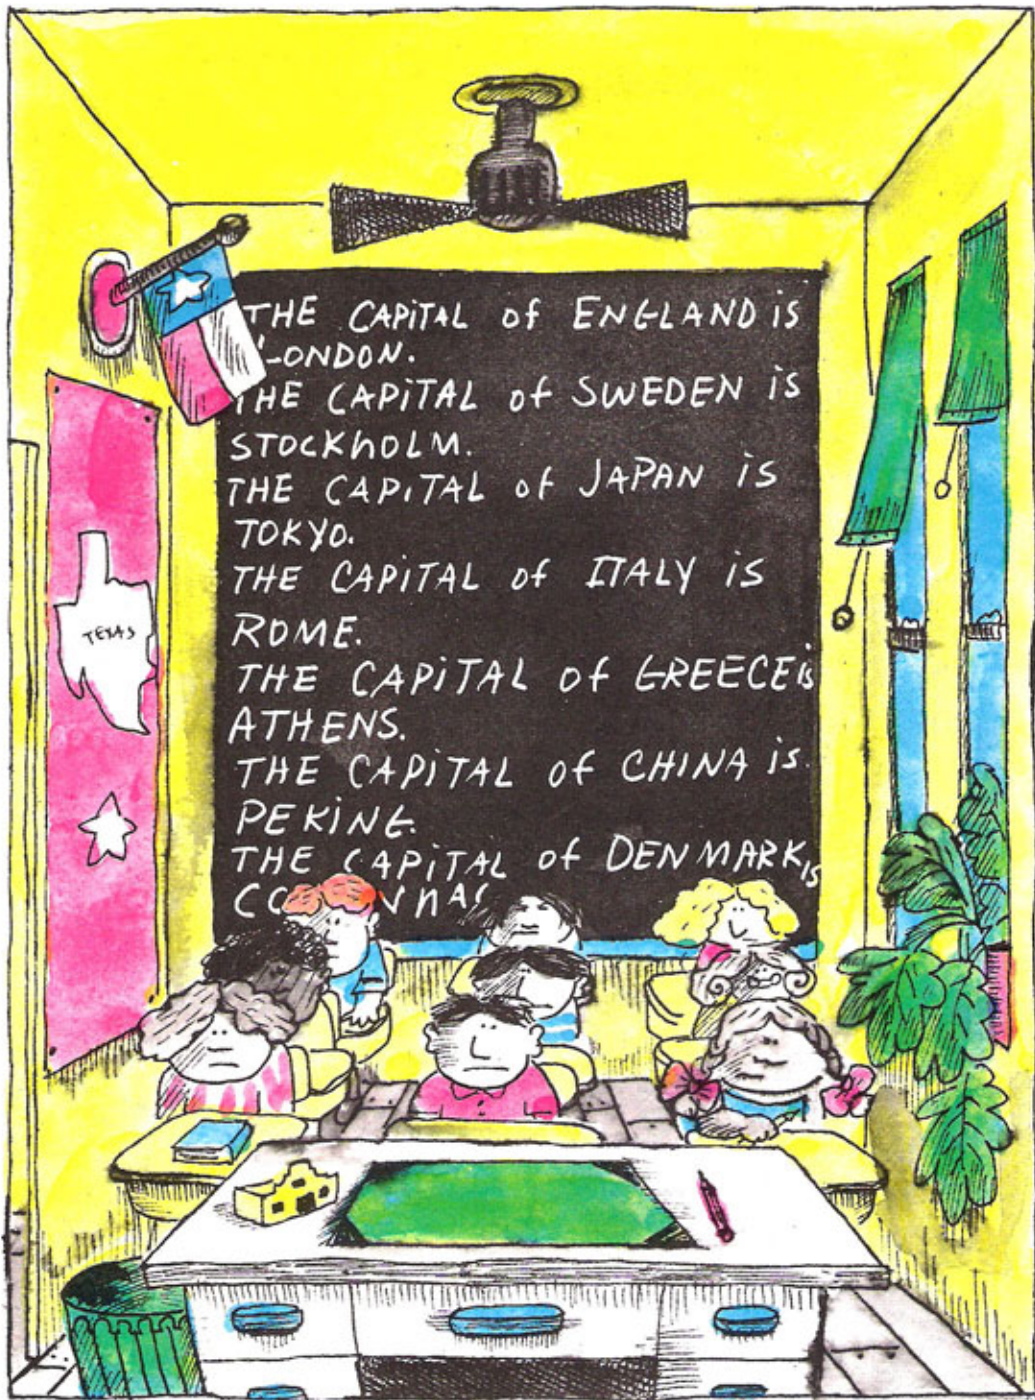 THE CAPITAL of ENGLAND is
LONDON.
THE CAPITAL of SWEDEN is
STOCKHOLM.
THE CAPITAL of JAPAN is
TOKYO.
THE CAPITAL of ITALY is
ROME.
THE CAPITAL of GREECE is
ATHENS.
THE CAPITAL of CHINA is
PEKING.
THE CAPITAL of DENMARK is
TEXAS